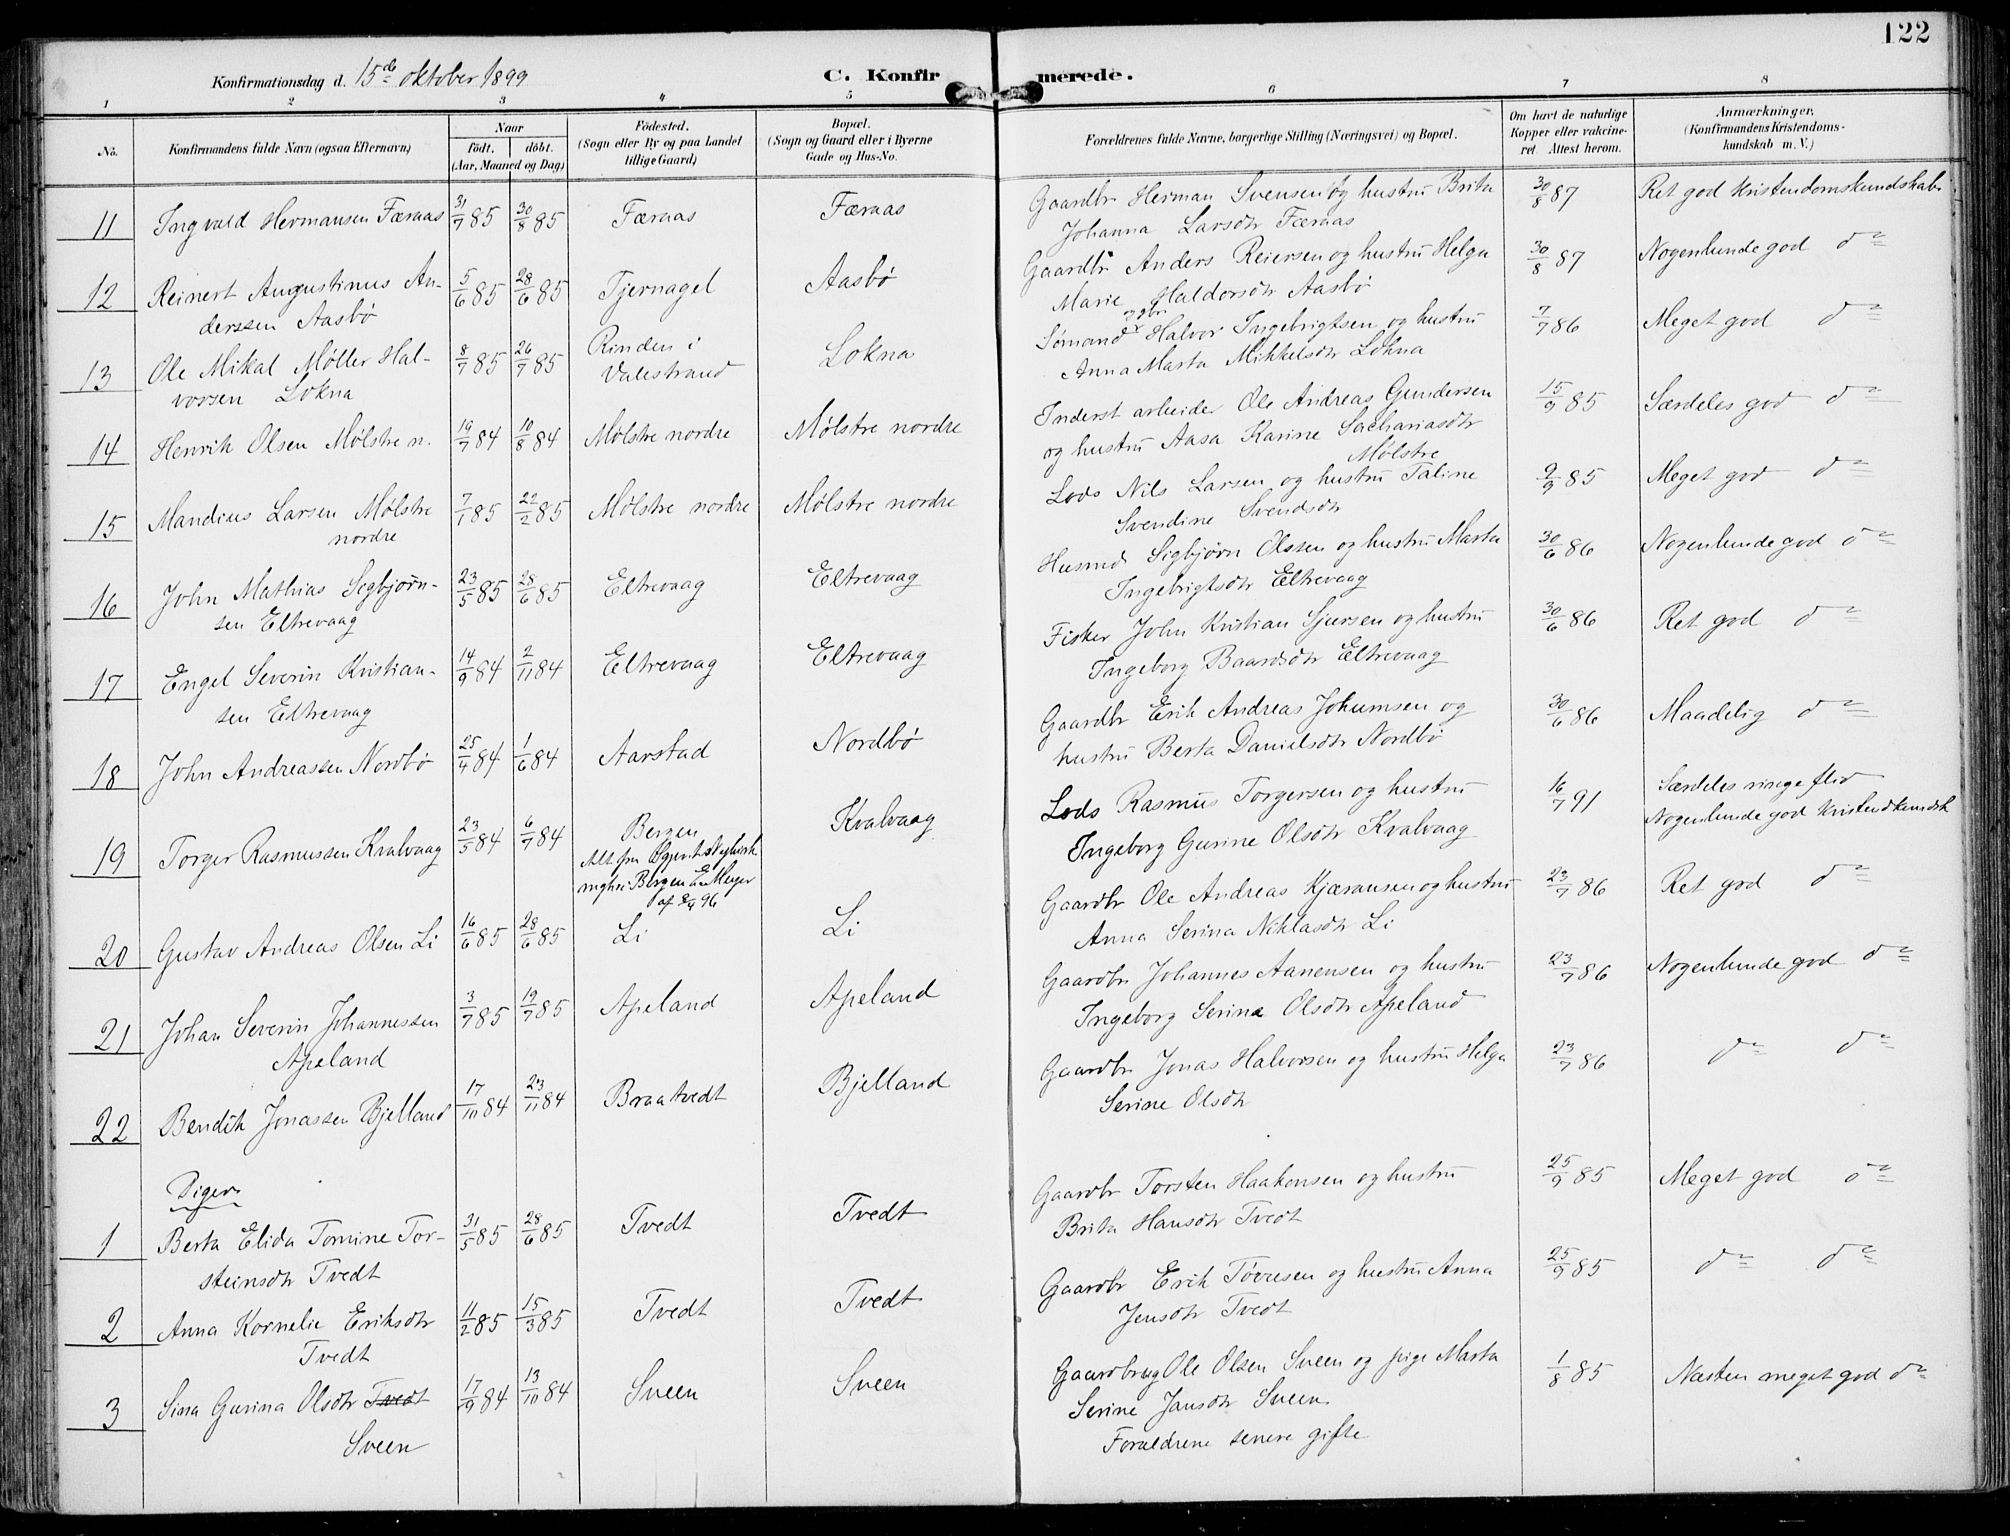 122
Konfirmationsdag d. 15de oktober 1899
C. Konfirmerede.
1 2 3 4 5 6 7 8
No.
Konfirmandens fulde Navn (ogsaa Efternavn)
Naar
Født. døbt.
(Aar, Maaned og Dag)
Fødested.
(Sogn eller By og paa Landet
tillige Gaard)
Bopæl.
(Sogn og Gaard eller i Byerne
Gade og Hus-No.
Forældrenes fulde Navne, borgerlige Stilling (Næringsvei) og Bopæl.
Om havt de naturlige
Kopper eller vakcine-
ret. Attest herom.
Anmærkninger.
(Konfirmandens Kristendoms-
kundskab m. V.)
11 Ingvald Hermansen Færaas 31/7 85 30/8 85 Færaas Færaas Gaardbr Herman Svensen og hustru Brita 30/8 87 Ret god Kristendomskundskab
Johanna Larsdtr Færaas
12 Reinert Augustinus An- 5/6 85 28/6 85 Tjernagel Aasbø Gaardbr Anders Reiersen og hustru Helga 30/8 87 Nogenlunde god do
derssen Aasbø Marie Haldorsdtr Aasbø
13 Ole Mikal Møller Hal- 8/7 85 26/7 85 Rinden i Lokna Sømand og gbr Halvor Ingebrigtsen og hustru 7/7 86 Meget god do
vorsen Lokna Valestrand Anna Marta Mikkelsdtr Lokna
14 Henrik Olsen Mølstre n. 19/7 84 10/8 84 Mølstre nordre Mølstre nordre Inderst arbeider Ole Andreas Gundersen 15/9 85 Særdeles god do
og hustru Aasa Karine Sachariasdtr
Mølstre
15 Mandius Larsen Mølstre 7/1 85 22/2 85 Mølstre nordre Mølstre nordre Lods Nils Larsen og hustru Taline 2/9 85 Meget god do
nordre Svendine Svendsdtr
16 John Mathias Sigbjørn- 23/5 85 28/6 85 Eltrevaag Eltrevaag Husmd Sigbjørn Olssen og hustru Marta 30/6 86 Nogenlunde god do
sen Eltrevaag Ingebrigtsdtr Eltrevaag
17 Engel Severin Kristian- 14/9 84 2/11 84 Eltrevaag Eltrevaag Fisker John Kristian Sjursen og hustru 30/6 86 Ret god do
sen Eltrevaag Ingeborg Baardsdtr Eltrevaag
18 John Andreassen Nordbø 25/4 84 1/6 84 Aarstad Nordbø Gaardbr Erik Andreas Johumsen og 30/6 86 Maadelig do
hustru Berta Danielsdtr Nordbø
19 Torger Rasmussen Kvalvaag 23/5 84 6/7 84 Bergen Kvalvaag Lods Rasmus Torgersen og hustru 16/7 91 Særdeles ringe flid
Ingeborg Gurine Olsdtr Kvalvaag Nogenlunde god Kristendkundsk
Alt. fra
Bergen Meyer
20 Gustav Andreas Olsen Li 16/6 85 28/6 85 Li Li Gaardbr Ole Andreas Kjæransen og hustru 23/7 86 Ret god do
Anna Serina Niklasdtr Li
21 Johan Severin Johannessen 3/7 85 19/7 85 Apeland Apeland Gaardbr Johannes Aanensen og hustru 23/7 86 Nogenlunde god do
Apeland Ingeborg Serine Olsdtr Apeland
22 Bendik Jonassen Bjelland 17/10 84 23/11 84 Braatvedt Bjelland Gaardbr Jonas Halvorsen og hustru Helga 23/7 86 do do
Serine Olsdtr
Piger
1 Berta Elida Tomine Tor- 31/5 85 28/6 85 Tvedt Tvedt Gaardbr Torsten Haakonsen og hustru 25/9 85 Meget god do
steinsdtr Tvedt Brita Hansdtr Tvedt
2 Anna Kornelie Eriksdtr 11/2 85 15/3 85 Tvedt Tvedt Gaardbr Erik Tøvesen og hustru Anna 25/9 85 do do
Tvedt Jensdtr Tvedt
3 Sina Gurina Olsdtr Tvedt 17/9 84 13/10 84 Sveen Sveen Gaardbrug Ole Olsen Sveen og pige Marta 1/8 85 Næsten meget god do
Sveen Serine Jansdtr Sveen
Forældrene senere gifte